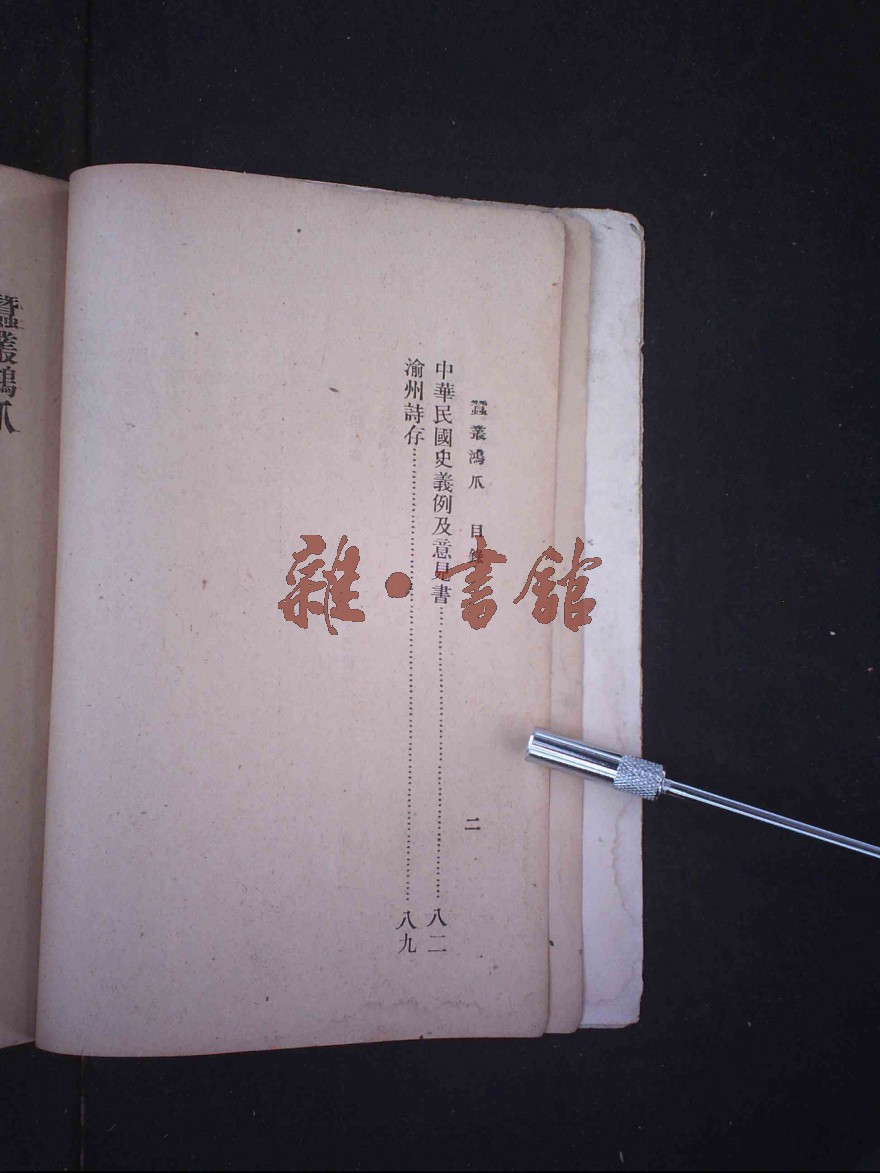 蠶叢鴻爪 目錄 二
中華民國史義例及意見書……八二
渝州詩存……八九
蠶叢鴻爪
雜·書館